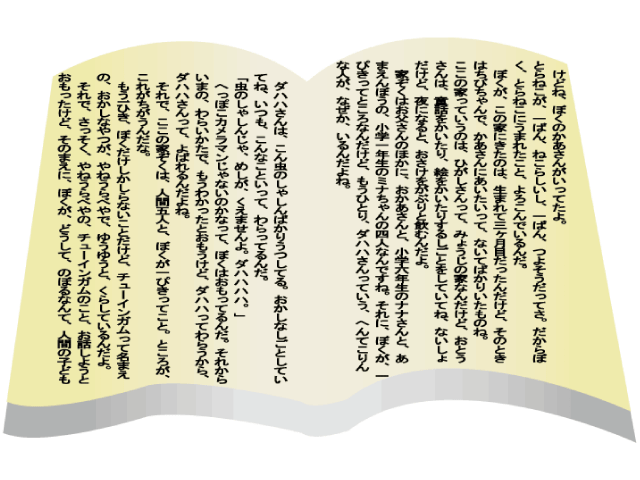 けどね、ぼくのかあさんがいってたよ。
とらねこが、一ばん、ねこらしいし、一ばん、つよそうだってさ。だからぼ
く、とらねこにうまれたこと、よろこんでいるんだ。
ぼくが、この家にきたのは、生まれて三ヶ月目だったんだけど、そのとき
はちびちゃんで、かあさんにあいたいって、ないてばかりいたものね。
ここの家っていうのは、ひがしさんって、みょうじの家なんだけど、おとう
さんは、童話をかいたり、絵をかいたりするしごとをしていてね、ないしょ
だけど、夜になると、おさけをがぶりと飲むんだよ。
家ぞくはお父さんのほかに、おかあさんと、小学六年生のナナさんと、あ
まえんぼうの、小学一年生のミナちゃんの四人なんですね。それに、ぼくが、一
ぴきってところなんだけど、もうひとり、ダハハさんっていう、へんてこりん
な人が、なぜか、いるんだよね。
ダハハさんは、こん虫のしゃしんばかりうつしてる。おかしなしごとしてい
てね、いつも、こんなこといって、わらってるんだ。
「虫のしゃしんじゃ、めしが、くえませんよ。ダハハハハ。」
（へっぽこカメラマンじゃないのかなって、ぼくはおもってるんだ。それから
いまの、わらいかたで、もうわかったとおもうけど、ダハハってわらうから、
ダハハさんって、よばれるんだよね。
それで、ここの家ぞくは、人間五人と、ぼくが一ぴきってこと。ところが、
これがちがうんだな。
もう一ひき、ぼくだけしかしらないことだけど、チューインガムって名まえ
の、おかしなやつが、やねうらべやで、ゆうゆうと、くらしているんだよ。
それで、さっそく、やねうらべやの、チューインガムのこと、お話しようと
おもったけど、そのまえに、ぼくが、どうして、のぼるなんて、人間の子ども